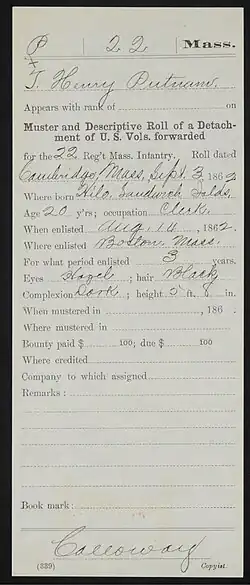 P 22 Mass.
J. Henry Putnam.
Appears with rank of on
Muster and Descriptive Roll of a Detach-
ment of U. S. Vols. forwarded
for the 22 Reg't Mass. Infantry. Roll dated
Cambridge, Mass, Sept. 3, 1862
Where born Hilo, Sandwich Islds.
Age 20 y'rs; occupation Clerk.
When enlisted Aug. 14, 1862.
Where enlisted Boston, Mass.
For what period enlisted 3 years.
Eyes Hazel; hair Black
Complexion Dark; height 5 ft. 8 in.
When mustered in , 186 .
Where mustered in
Bounty paid $ 100; due $ 100
Where credited
Company to which assigned
Remarks:
Book mark:
Calloway
(339) Copyist.